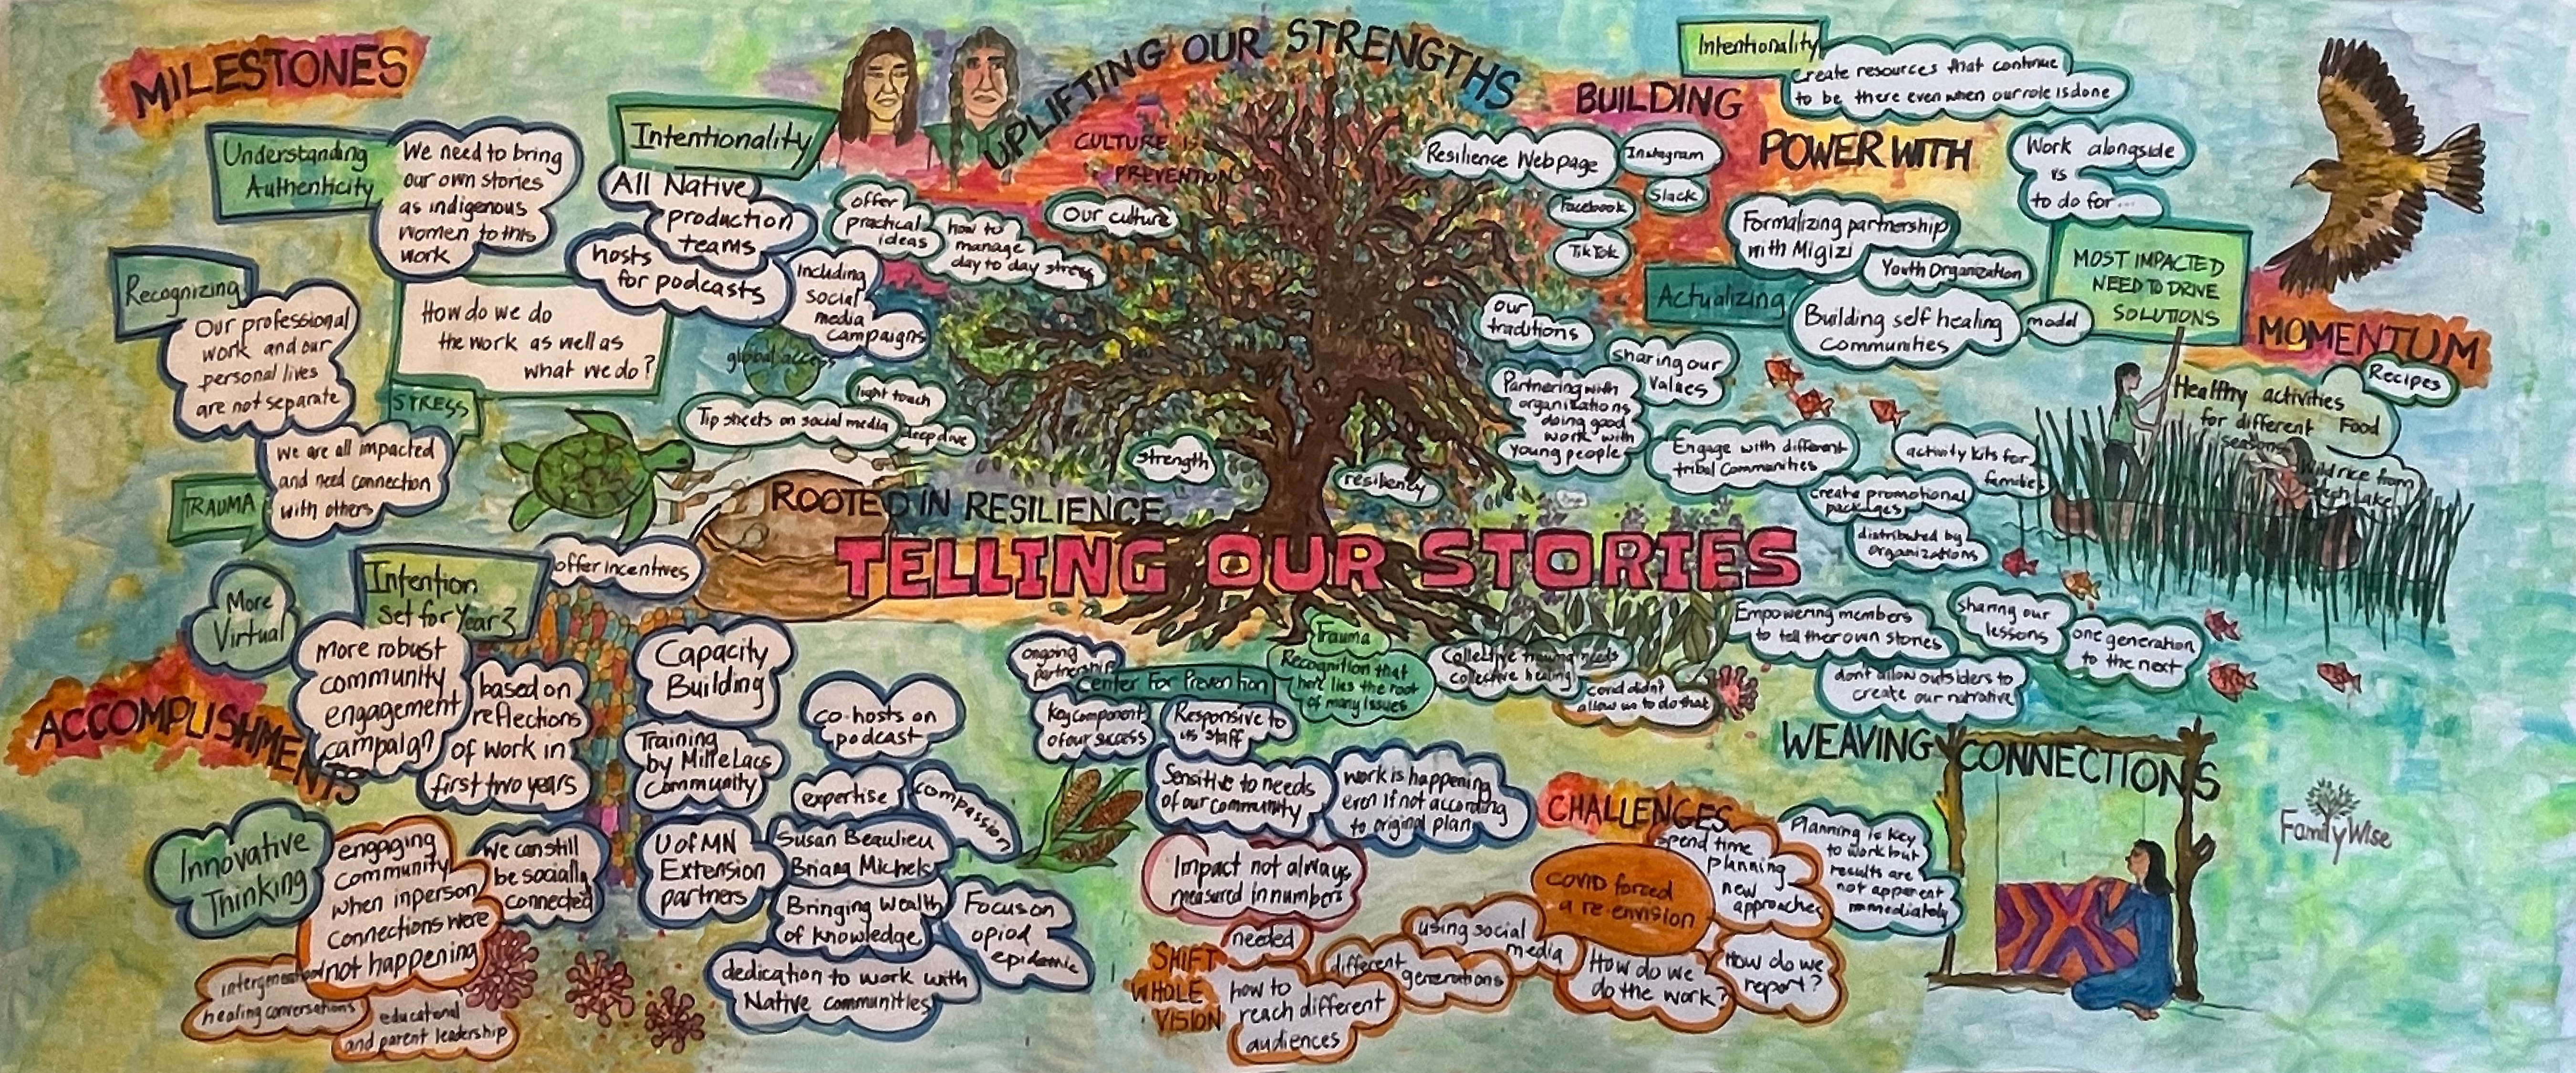 MILESTONES
Understanding
Authenticity
We need to bring
our own stories
as indigenous
women to this
work
Recognizing
Our professional
work and our
personal lives
are not separate
How do we do
the work as well as
what we do?
STRESS
We are all impacted
and need connection
with others
TRAUMA
Intentionality
All Native
production
teams
hosts
for podcasts
Including
social
media
campaigns
offer
practical
ideas
how to
manage
day to day stress
global access
light touch
Tip sheets on social media
deep dive
UPLIFTING OUR STRENGTHS
CULTURE IS
PREVENTION
Our culture
strength
resiliency
ROOTED IN RESILIENCE
TELLING OUR STORIES
BUILDING
POWER WITH
Intentionality
Create resources that continue
to be there even when our role is done
Resilience Webpage
Instagram
Slack
Facebook
TikTok
Work alongside
vs
to do for...
Formalizing partnership
with Migizi
Youth Organization
Actualizing
Building self healing
communities
model
MOST IMPACTED
NEED TO DRIVE
SOLUTIONS
our
traditions
sharing our
values
Partnering with
organizations
doing good
work with
young people
Engage with different
tribal Communities
activity kits for
families
create promotional
packages
distributed by
organizations
MOMENTUM
Recipes
Healthy activities
for different
seasons
Food
Wild rice from
Lake
Empowering members
to tell their own stories
sharing our
lessons
one generation
to the next
don't allow outsiders to
create our narrative
WEAVING CONNECTIONS
FamilyWise
ACCOMPLISHMENTS
More
Virtual
Intention
Set for Year 3
offer incentives
More robust
community
engagement
campaign
based on
reflections
of work in
first two years
Innovative
Thinking
engaging
community
when inperson
connections were
not happening
We can still
be socially
connected
intergenerational
healing conversations
educational
and parent leadership
Capacity
Building
Training
by Mille Lacs
Community
U of MN
Extension
partners
co-hosts on
podcast
expertise
compassion
Susan Beaulieu
Briana Michels
Bringing wealth
of knowledge
Focus on
opiod
epidemic
dedication to work with
Native communities
ongoing
partnership
Center For Prevention
Key component
of our success
Responsive to
us staff
Trauma
Recognition that
here lies the root
of many issues
Collective trauma needs
collective healing
covid didn't
allow us to do that
Sensitive to needs
of our community
work is happening
even if not according
to original plan
Impact not always
measured in numbers
CHALLENGES
spend time
planning
new
approaches
Planning is key
to work but
results are
not apparent
immediately
COVID forced
a re-envision
SHIFT
WHOLE
VISION
needed
how to
reach different
audiences
different
generations
using social
media
How do we
do the work?
How do we
report?